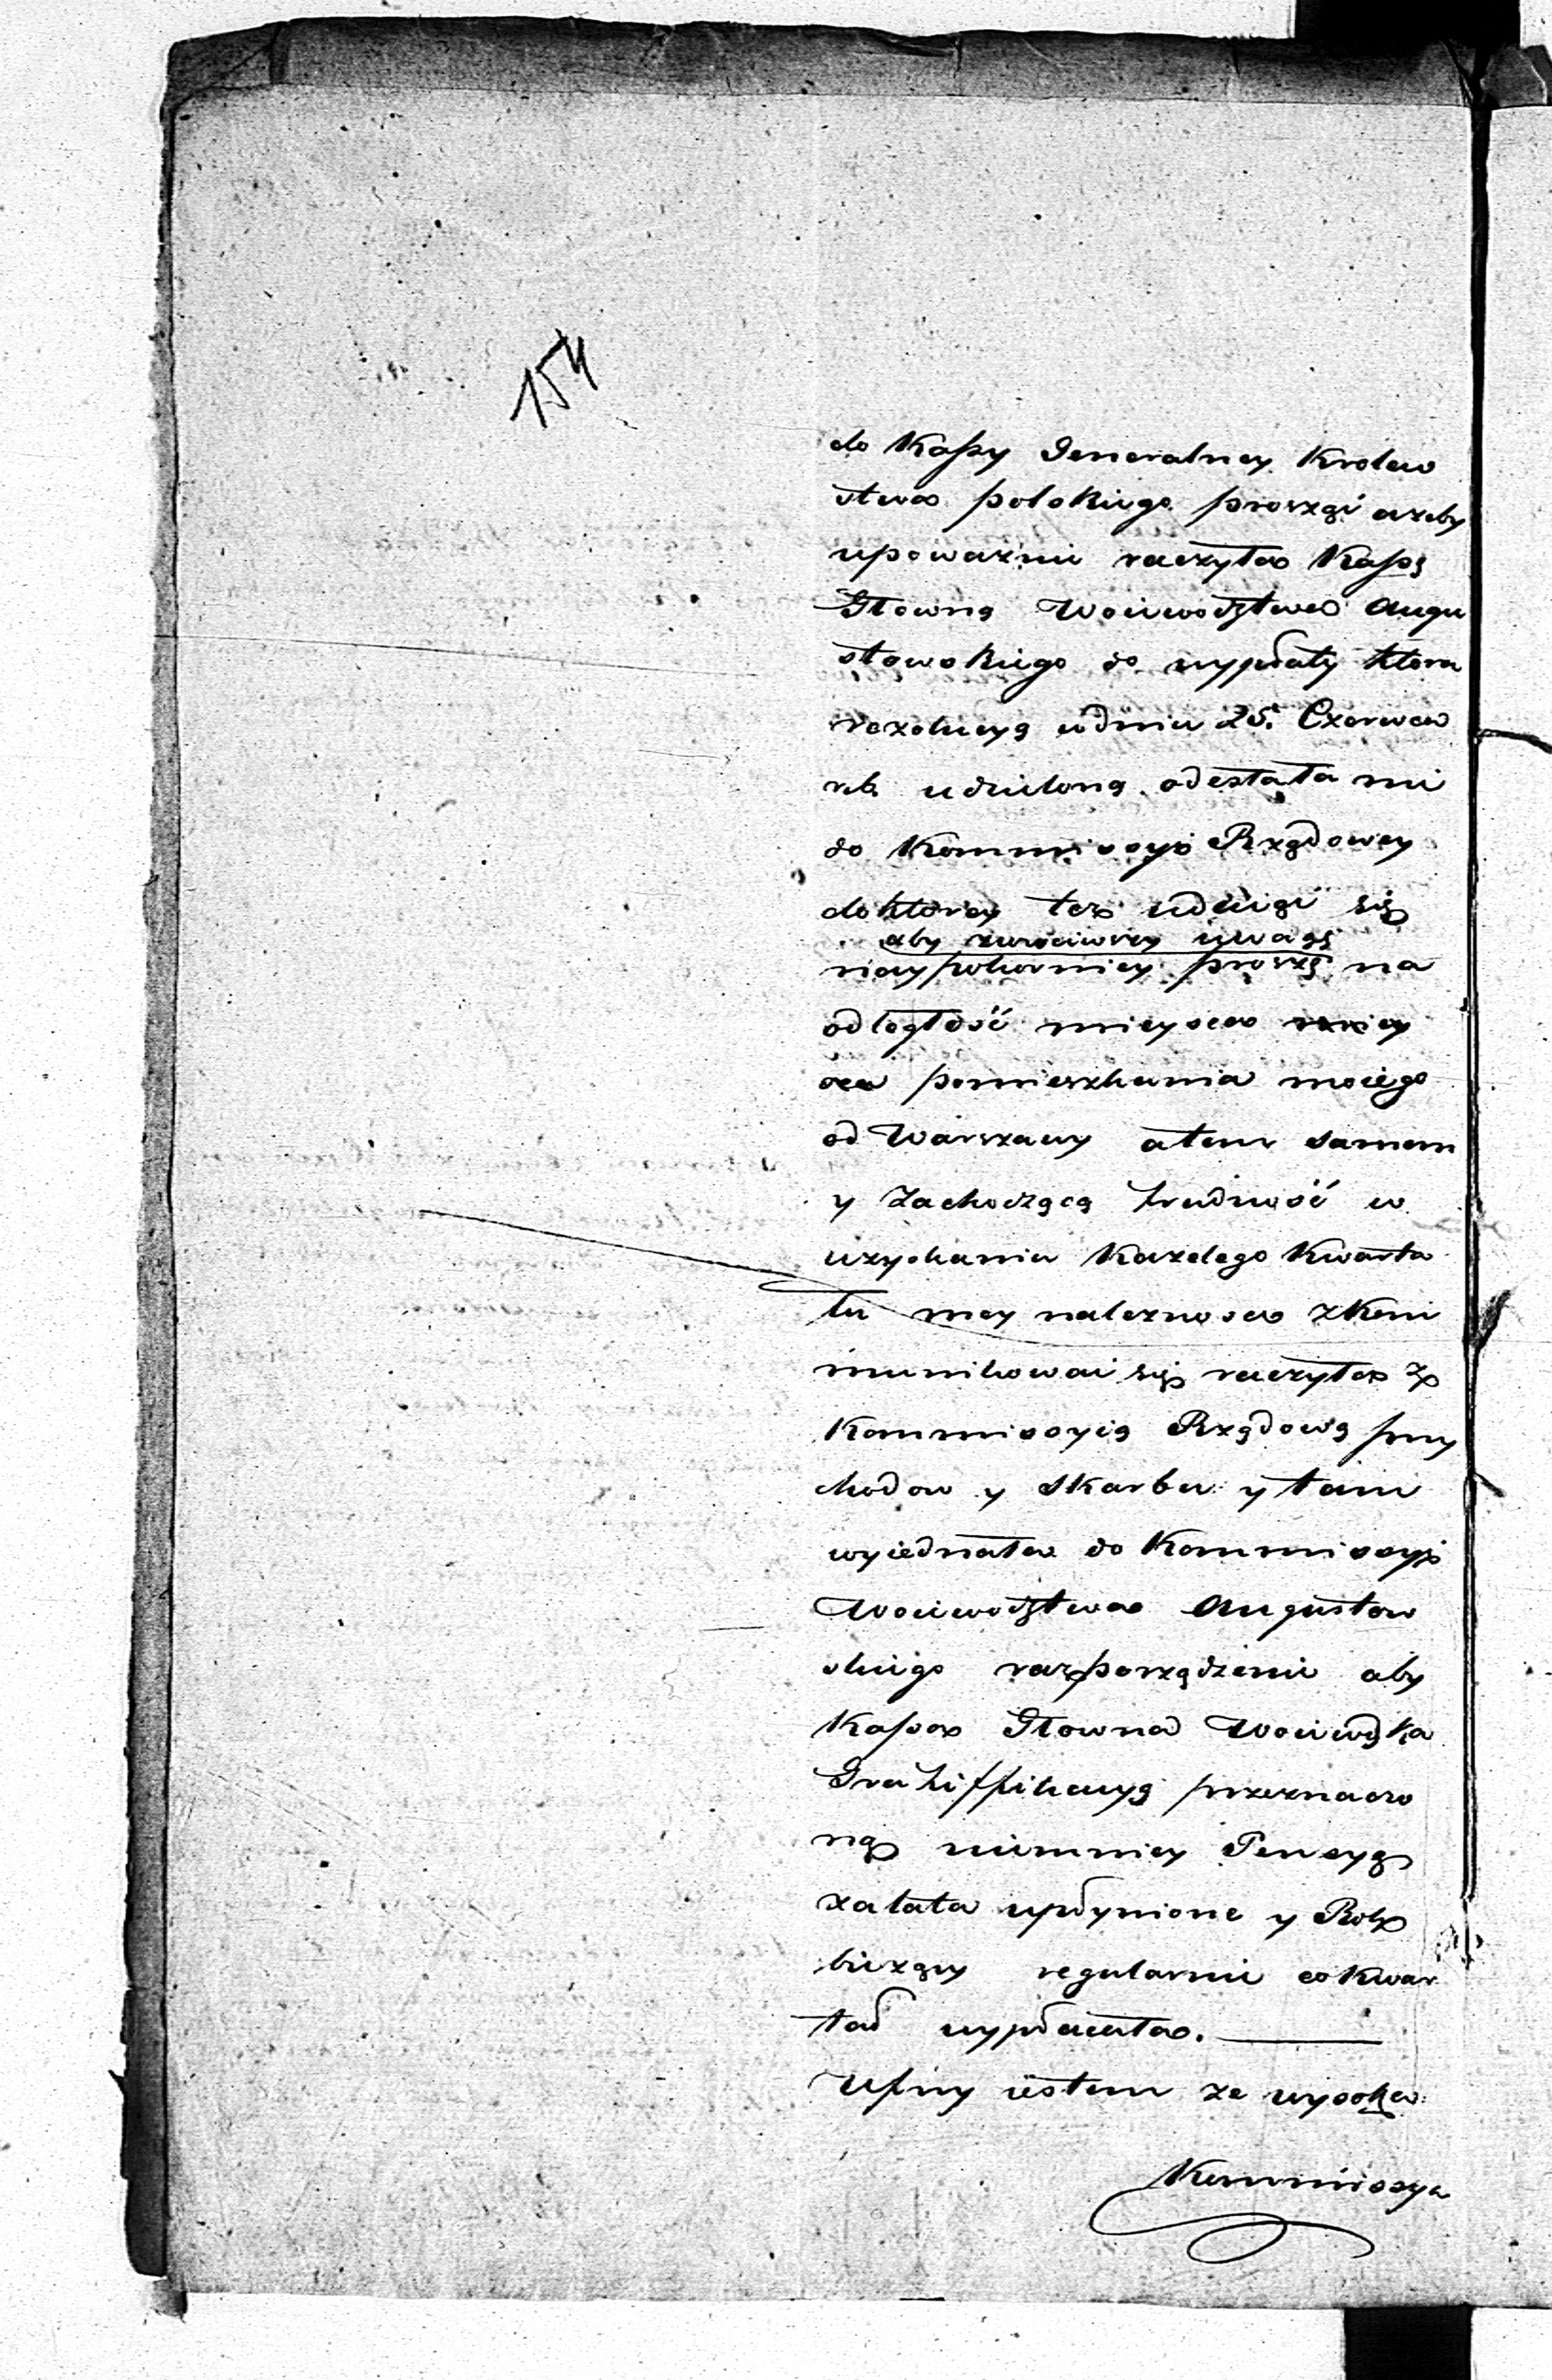 154
do Kassy Generalney Krolew
stwa polskiego prosząc ażeby
upoważnić raczyła Kassę
Głowną Woiewodztwa Augu
stowskiego do wypłaty ktora
rezolucyą wdniu 25. Czerwca
rb. udzieloną odesłała mi
do Kommissyi Rządowey
doktorey też udaiąc się
aby zwrociwszy uwagę
naypokorniey proszę na
odległość mieysca
pomieszkania moiego
od Warszawy atem samem
y zachodzącą trudność w
uzyskaniu Każdego Kwarta
łu mey należnosci zkom
munikować się raczyła z
Kommissyią Rządową przy
chodow y Skarbu y tam
wyiednała do Kommissyi
Woiewodztwa Augustow
skiego rozporządzenie aby
Kassa Głowna Woiewdzka
Gratiffikacyą przeznaczo
ną niemniey Pensyą
zalata upłynione y Rok
bieżący regularnie cokwar
tał wypłacała.
Ufny iestem że wysoka
Kommissya